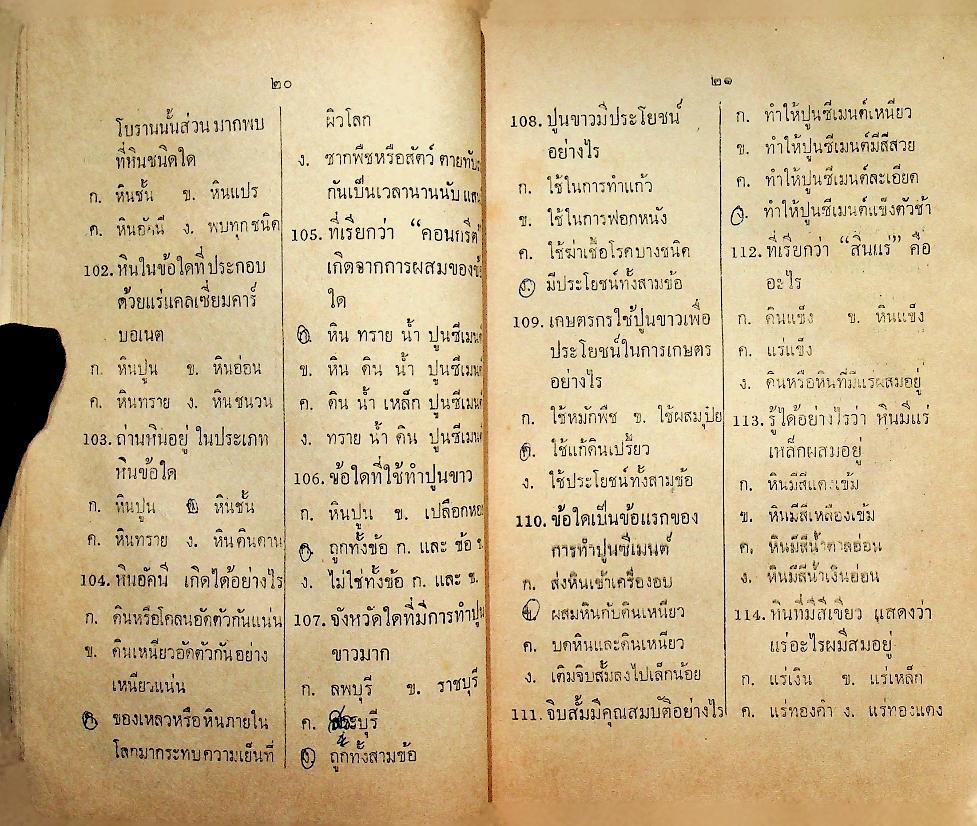 ๒๐
โบรานนั้นส่วนมากพบ
ที่หินชนิดใด
ก. หินชั้น ข. หินแปร
ค. หินอัคนี ง. พบทุกชนิด
102. หินในข้อใดที่ประกอบ
ด้วยแร่แคลเซี่ยมคาร์
บอเนต
ก. หินปูน ข. หินอ่อน
ค. หินทราย ง. หินชนวน
103. ถ่านหินอยู่ในประเภท
หินข้อใด
ก. หินปูน ข. หินชั้น
ค. หินทราย ง. หินดินดาน
104. หินอัคนี เกิดได้อย่างไร
ก. ดินหรือโคลนอัดตัวกันแน่น
ข. ดินเหนียวอัดตัวกันอย่าง
เหนียวแน่น
ค. ของเหลวหรือหินภายใน
โลกมากระทบความเย็นที่
ผิวโลก
ง. ซากพืชหรือสัตว์ ตายทับ
กันเป็นเวลานานนับแสน
105. ที่เรียกว่า “คอนกรีต”
เกิดจากการผสมของข้อ
ใด
ก. หิน ทราย น้ำ ปูนซีเมนต์
ข. หิน ดิน น้ำ ปูนซีเมนต์
ค. ดิน น้ำ เหล็ก ปูนซีเมนต์
ง. ทราย น้ำ ดิน ปูนซีเมนต์
106. ข้อใดที่ใช้ทำปูนขาว
ก. หินปูน ข. เปลือกหอย
ค. ถูกทั้งข้อ ก. และ ข้อ ข.
ง. ไม่ใช่ทั้งข้อ ก. และ ข.
107. จังหวัดใดที่มีการทำปูน
ขาวมาก
ก. ลพบุรี ข. ราชบุรี
ค. สระบุรี
ง. ถูกทั้งสามข้อ
๒๑
108. ปูนขาวมีประโยชน์
อย่างไร
ก. ใช้ในการทำแก้ว
ข. ใช้ในการฟอกหนัง
ค. ใช้ฆ่าเชื้อโรคบางชนิด
ง. มีประโยชน์ทั้งสามข้อ
109. เกษตรกรใช้ปูนขาวเพื่อ
ประโยชน์ในการเกษตร
อย่างไร
ก. ใช้หมักพืช ข. ใช้ผสมปุ๋ย
ค. ใช้แก้ดินเปรี้ยว
ง. ใช้ประโยชน์ทั้งสามข้อ
110. ข้อใดเป็นข้อแรกของ
การทำปูนซีเมนต์
ก. ส่งหินเข้าเครื่องอบ
ข. ผสมหินกับดินเหนียว
ค. บดหินและดินเหนียว
ง. เติมจิบสั้มลงไปเล็กน้อย
111. จิบสั้มมีคุณสมบัติอย่างไร
ก. ทำให้ปูนซีเมนต์เหนียว
ข. ทำให้ปูนซีเมนต์มีสีสวย
ค. ทำให้ปูนซีเมนต์ละเอียด
ง. ทำให้ปูนซีเมนต์แข็งตัวช้า
112. ที่เรียกว่า “สินแร่” คือ
อะไร
ก. ดินแข็ง ข. หินแข็ง
ค. แร่แข็ง
ง. ดินหรือหินที่มีแร่ผสมอยู่
113. รู้ได้อย่างไรว่า หินมีแร่
เหล็กผสมอยู่
ก. หินมีสีแดงเข้ม
ข. หินมีสีเหลืองเข้ม
ค. หินมีสีน้ำตาลอ่อน
ง. หินมีสีน้ำเงินอ่อน
114. หินที่มีสีเขียว แสดงว่า
แร่อะไรผมีสมอยู่
ก. แร่เงิน ข. แร่เหล็ก
ค. แร่ทองคำ ง. แร่ทองแดง